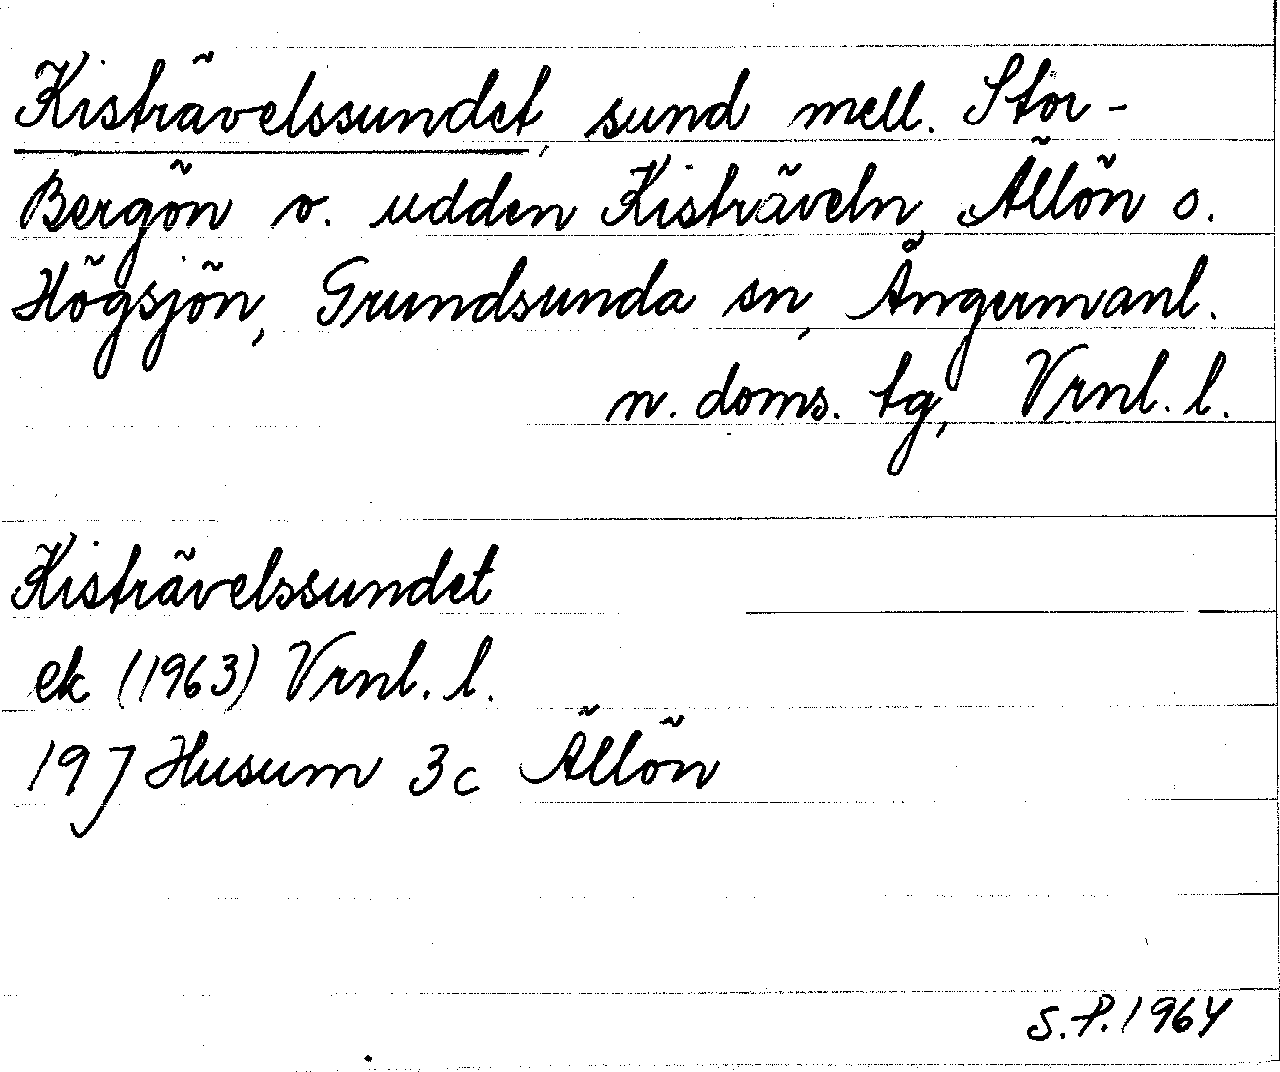 Kisträvelssundet, sund mell. Stor-
Bergön o. udden Kisträveln, Ällön o.
Högsjön, Grundsunda sn, Ångermanl.
n. doms. tg, Vrnl. l.
Kisträvelssundet
ek (1963) Vrnl. l.
19J Husum 3c Ällön
S.P. 1964